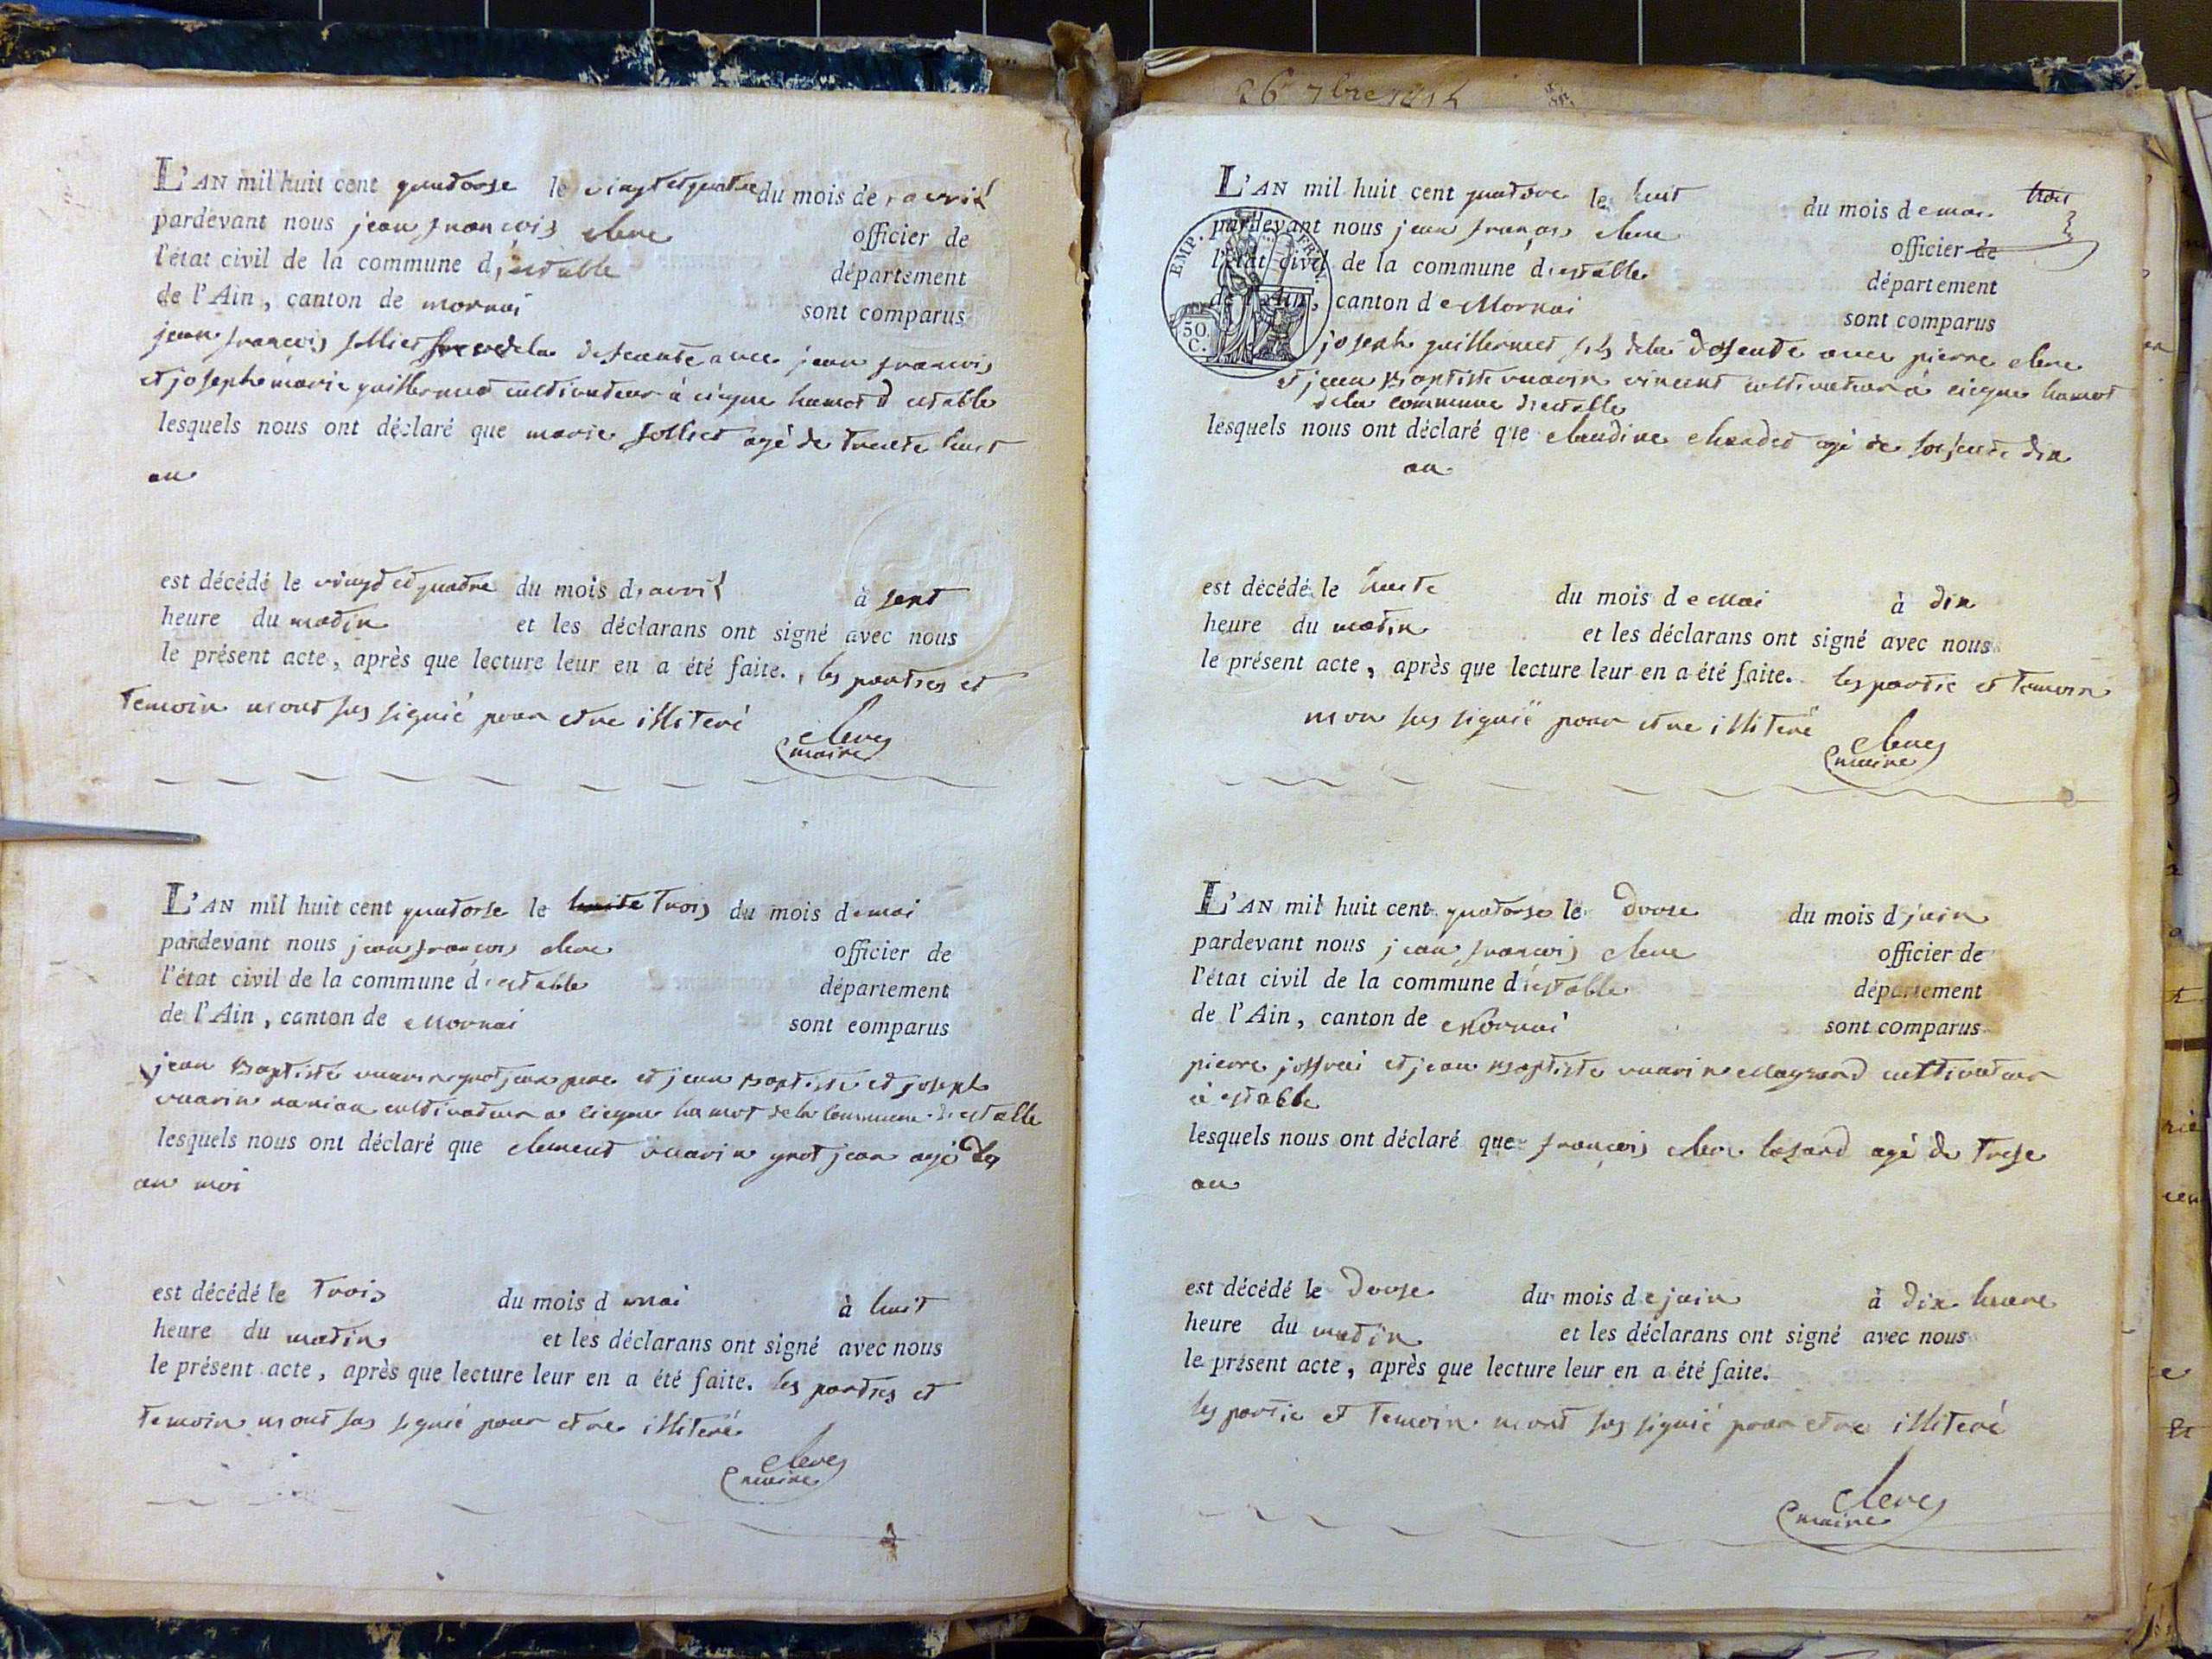 L'AN mil huit cent quatorse le vingt et quatre du mois de avril
pardevant nous jean françois clerc officier de
l'état civil de la commune d'estable département
de l'Ain, canton de mornai sont comparus
jean françois sollies de la desente avec jean francois
et joseph marie guillermet cultivateur à cicgne hamot d estable
lesquels nous ont déclaré que marie sollies agé de trente huit
an
est décédé le vingt et quatre du mois d'avril à sept
heure du matin et les déclarans ont signé avec nous
le présent acte, après que lecture leur en a été faite. les parties et
temoin n'ont sus signié pour etre illiteré
clerc
maire
L'AN mil huit cent quatorse le trois du mois de mai
pardevant nous jean françois clerc officier de
l'état civil de la commune d'estable département
de l'Ain, canton de Mornai sont comparus
jean Baptiste vuarin grosjean pere et jean Baptiste et joseph
vuarin cultivateur a cicgne hamot de la commune d'estable
lesquels nous ont déclaré que clement vuarin grot jean agé
an moi
est décédé le trois du mois d mai à huit
heure du matin et les déclarans ont signé avec nous
le présent acte, après que lecture leur en a été faite. les parties et
temoin n'ont sus signié pour etre illiteré
clerc
maire
26 7bre
L'AN mil huit cent quatorse le huit du mois de mai trois
pardevant nous jean françois clerc officier de
l'état civil de la commune d'estable département
de l'Ain, canton de Mornai sont comparus
EMP. FRAN.
50 C.
joseph guillermet fils de la desente avec pierre clerc
et jean Baptiste vuarin vincent cultivateur à cicgne hamot
de la commune d'estable
lesquels nous ont déclaré que claudine chardet agé de soisente dix
an
est décédé le huite du mois de Mai à dix
heure du matin et les déclarans ont signé avec nous
le présent acte, après que lecture leur en a été faite. les partie et temoin
n'on sus signié pour etre illiteré
clerc
maire
L'AN mil huit cent quatorse le doose du mois d juin
pardevant nous jean françois clerc officier de
l'état civil de la commune d'estable département
de l'Ain, canton de Mornai sont comparus
pierre joffrai et jean Baptiste vuarin Magrand cultivateur
à estable
lesquels nous ont déclaré que françois clerc lasard agé de trese
an
est décédé le doose du mois de juin à dix heure
heure du matin et les déclarans ont signé avec nous
le présent acte, après que lecture leur en a été faite.
les partie et temoin n'ont sus signié pour etre illiteré
clerc
maire